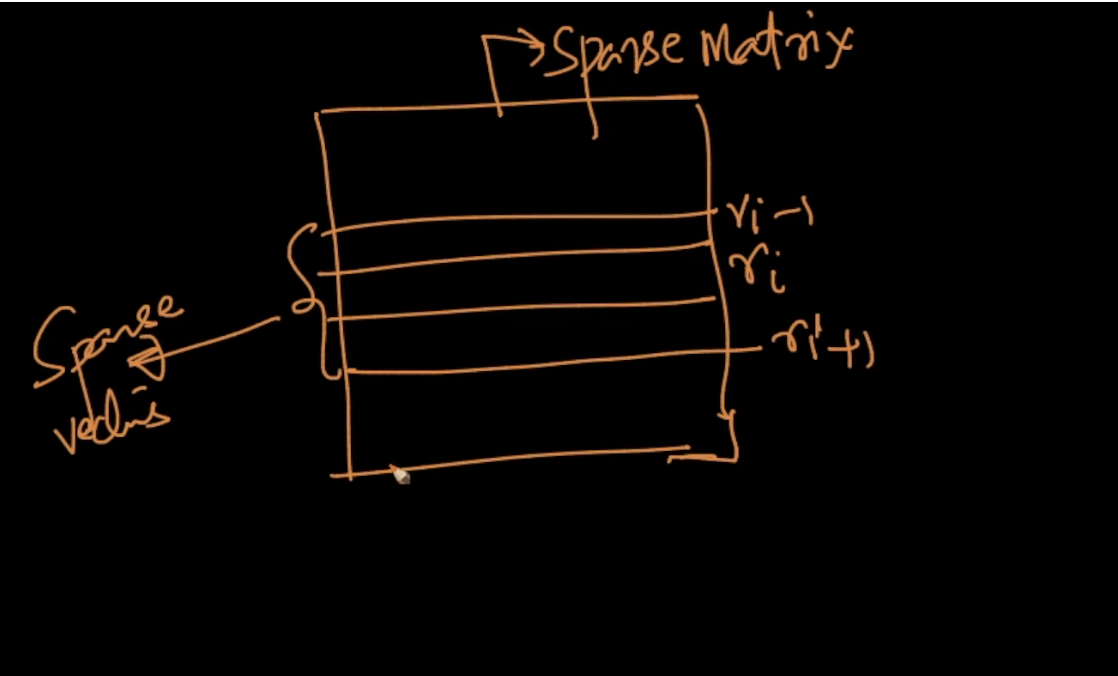 Sparse Matrix
ri-1
ri
ri+1
Sparse
vectors